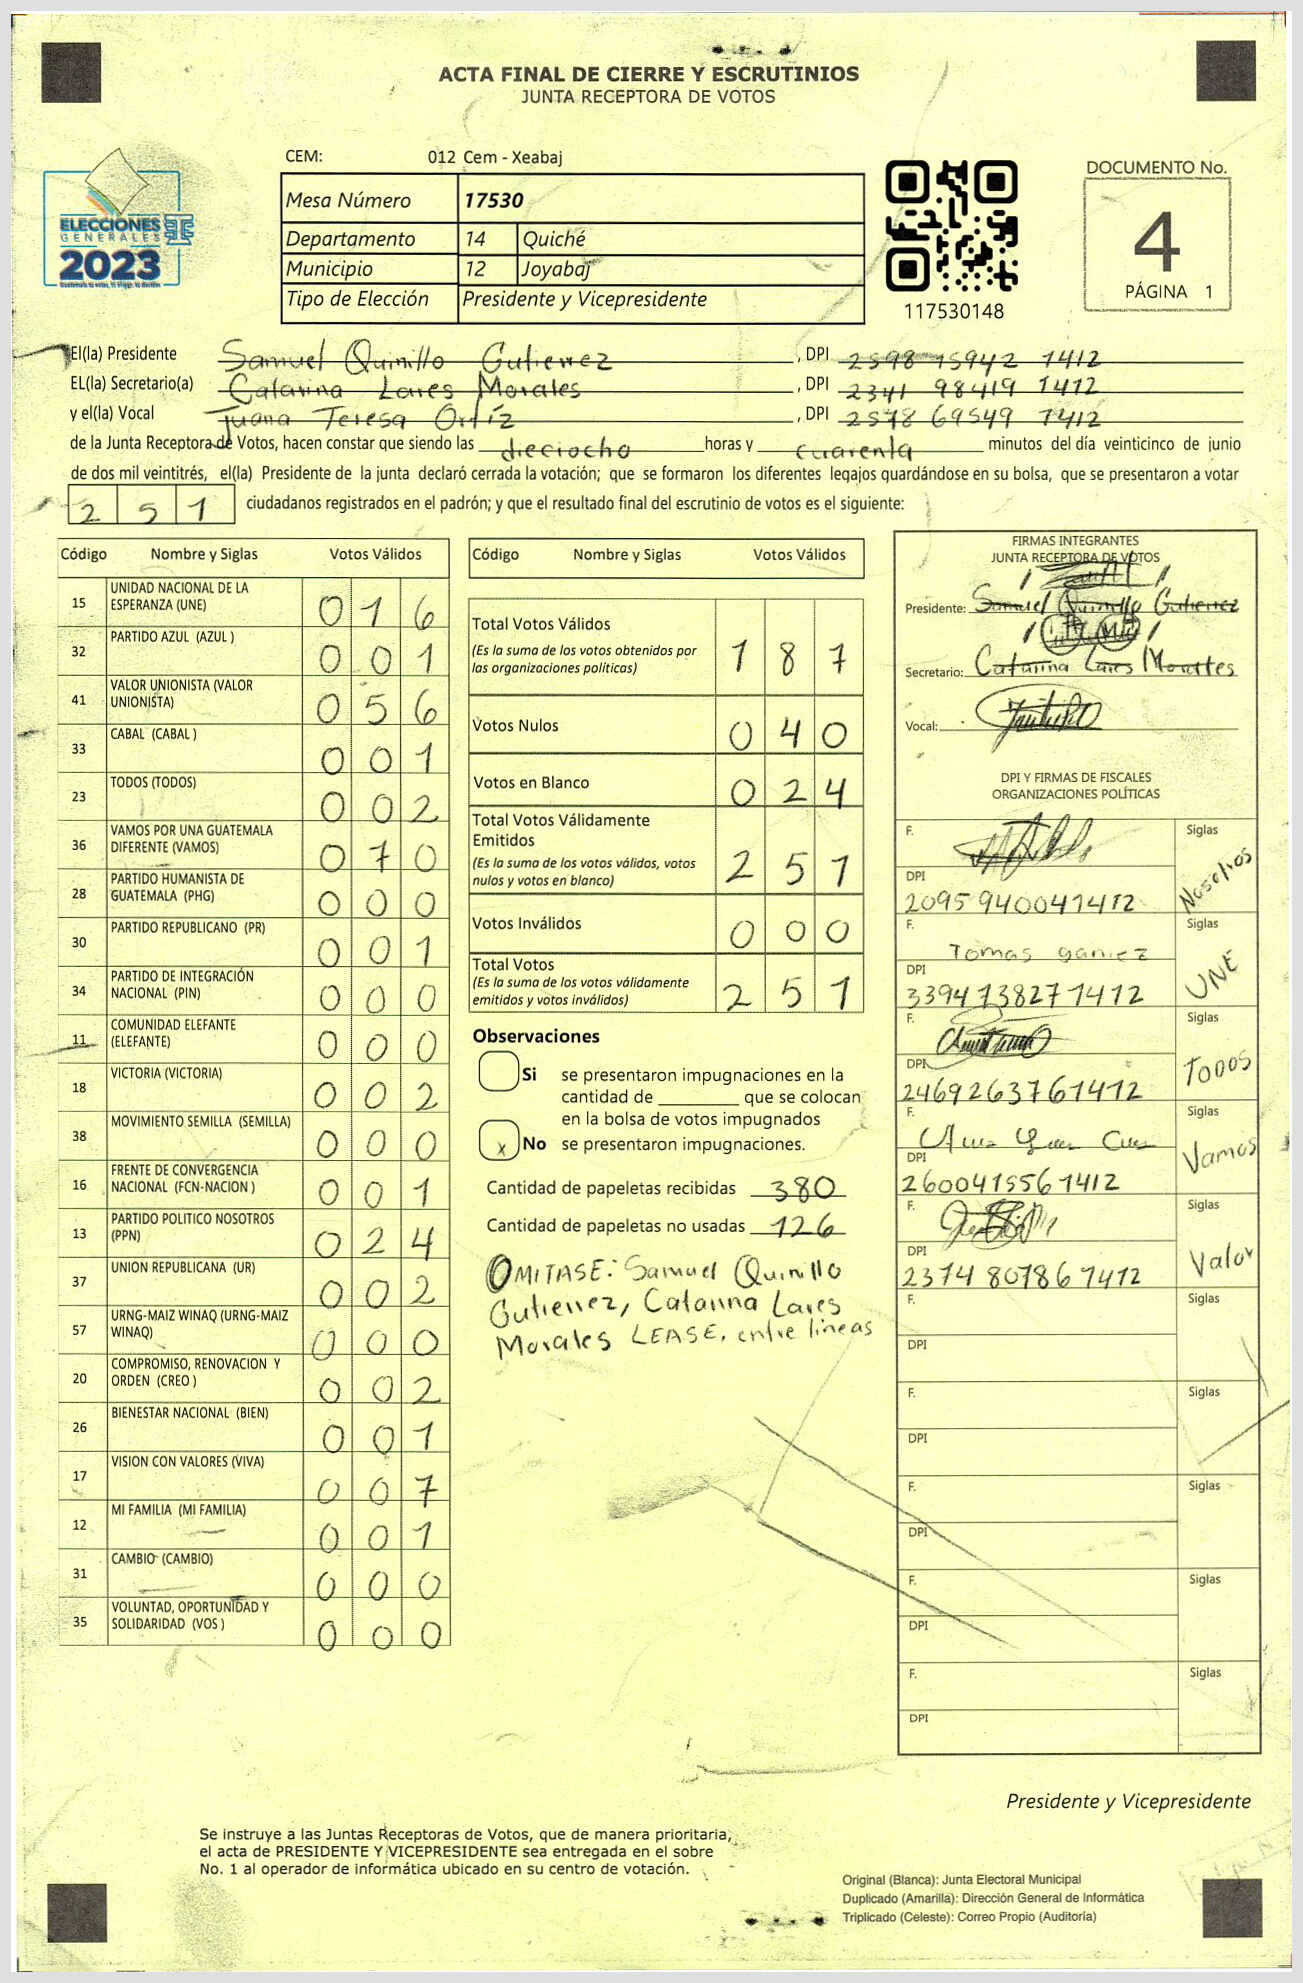 ACTA FINAL DE CIERRE Y ESCRUTINIOS
JUNTA RECEPTORA DE VOTOS
ELECCIONES
GENERALES
2023
CEM: 012 Cem - Xeabaj
Mesa Número 17530
Departamento 14 Quiché
Municipio 12 Joyabaj
Tipo de Elección Presidente y Vicepresidente
117530148
DOCUMENTO No.
4
PÁGINA 1
El(la) Presidente Samuel Quinillo Gutierrez, DPI 2598 15942 1412
EL(la) Secretario(a) Catarina Lares Morales, DPI 2341 98419 1412
y el(la) Vocal Juana Teresa Ortíz, DPI 2578 69549 1412
de la Junta Receptora de Votos, hacen constar que siendo las dieciocho horas y cuarenta minutos del día veinticinco de junio
de dos mil veintitrés, el(la) Presidente de la junta declaró cerrada la votación; que se formaron los diferentes legajos guardándose en su bolsa, que se presentaron a votar
251 ciudadanos registrados en el padrón; y que el resultado final del escrutinio de votos es el siguiente:
Código Nombre y Siglas Votos Válidos
15 UNIDAD NACIONAL DE LA ESPERANZA (UNE) 016
32 PARTIDO AZUL (AZUL ) 001
41 VALOR UNIONISTA (VALOR UNIONISTA) 056
33 CABAL (CABAL ) 001
23 TODOS (TODOS) 002
36 VAMOS POR UNA GUATEMALA DIFERENTE (VAMOS) 070
28 PARTIDO HUMANISTA DE GUATEMALA (PHG) 000
30 PARTIDO REPUBLICANO (PR) 001
34 PARTIDO DE INTEGRACIÓN NACIONAL (PIN) 000
11 COMUNIDAD ELEFANTE (ELEFANTE) 000
18 VICTORIA (VICTORIA) 002
38 MOVIMIENTO SEMILLA (SEMILLA) 000
16 FRENTE DE CONVERGENCIA NACIONAL (FCN-NACION ) 001
13 PARTIDO POLITICO NOSOTROS (PPN) 024
37 UNION REPUBLICANA (UR) 002
57 URNG-MAIZ WINAQ (URNG-MAIZ WINAQ) 000
20 COMPROMISO, RENOVACION Y ORDEN (CREO ) 002
26 BIENESTAR NACIONAL (BIEN) 001
17 VISION CON VALORES (VIVA) 007
12 MI FAMILIA (MI FAMILIA) 001
31 CAMBIO (CAMBIO) 000
35 VOLUNTAD, OPORTUNIDAD Y SOLIDARIDAD (VOS ) 000
Código Nombre y Siglas Votos Válidos
Total Votos Válidos 187
(Es la suma de los votos obtenidos por
las organizaciones políticas)
Votos Nulos 040
Votos en Blanco 024
Total Votos Válidamente
Emitidos 251
(Es la suma de los votos válidos, votos
nulos y votos en blanco)
Votos Inválidos 000
Total Votos 251
(Es la suma de los votos válidamente
emitidos y votos inválidos)
Observaciones
Si se presentaron impugnaciones en la
cantidad de ________ que se colocan
en la bolsa de votos impugnados
x No se presentaron impugnaciones.
Cantidad de papeletas recibidas 380
Cantidad de papeletas no usadas 126
OMITASE: Samuel Quinillo
Gutierrez, Catarina Lares
Morales LEASE, entre lineas
FIRMAS INTEGRANTES
JUNTA RECEPTORA DE VOTOS
Presidente: Samuel Quinillo Gutierrez
Secretario: Catarina Lares Morales
Vocal:
DPI Y FIRMAS DE FISCALES
ORGANIZACIONES POLÍTICAS
F. Siglas Nosotros
DPI 2095 94004 1412
F. Tomas ganiez Siglas UNE
DPI 3394 73827 1412
F. Siglas Todos
DPI 2469263761412
F. Siglas Vamos
DPI 2600415561412
F. Siglas Valor
DPI 2374 80786 1412
F. Siglas
DPI
F. Siglas
DPI
F. Siglas
DPI
F. Siglas
DPI
F. Siglas
DPI
Presidente y Vicepresidente
Se instruye a las Juntas Receptoras de Votos, que de manera prioritaria,
el acta de PRESIDENTE Y VICEPRESIDENTE sea entregada en el sobre
No. 1 al operador de informática ubicado en su centro de votación.
Original (Blanca): Junta Electoral Municipal
Duplicado (Amarilla): Dirección General de Informática
Triplicado (Celeste): Correo Propio (Auditoría)